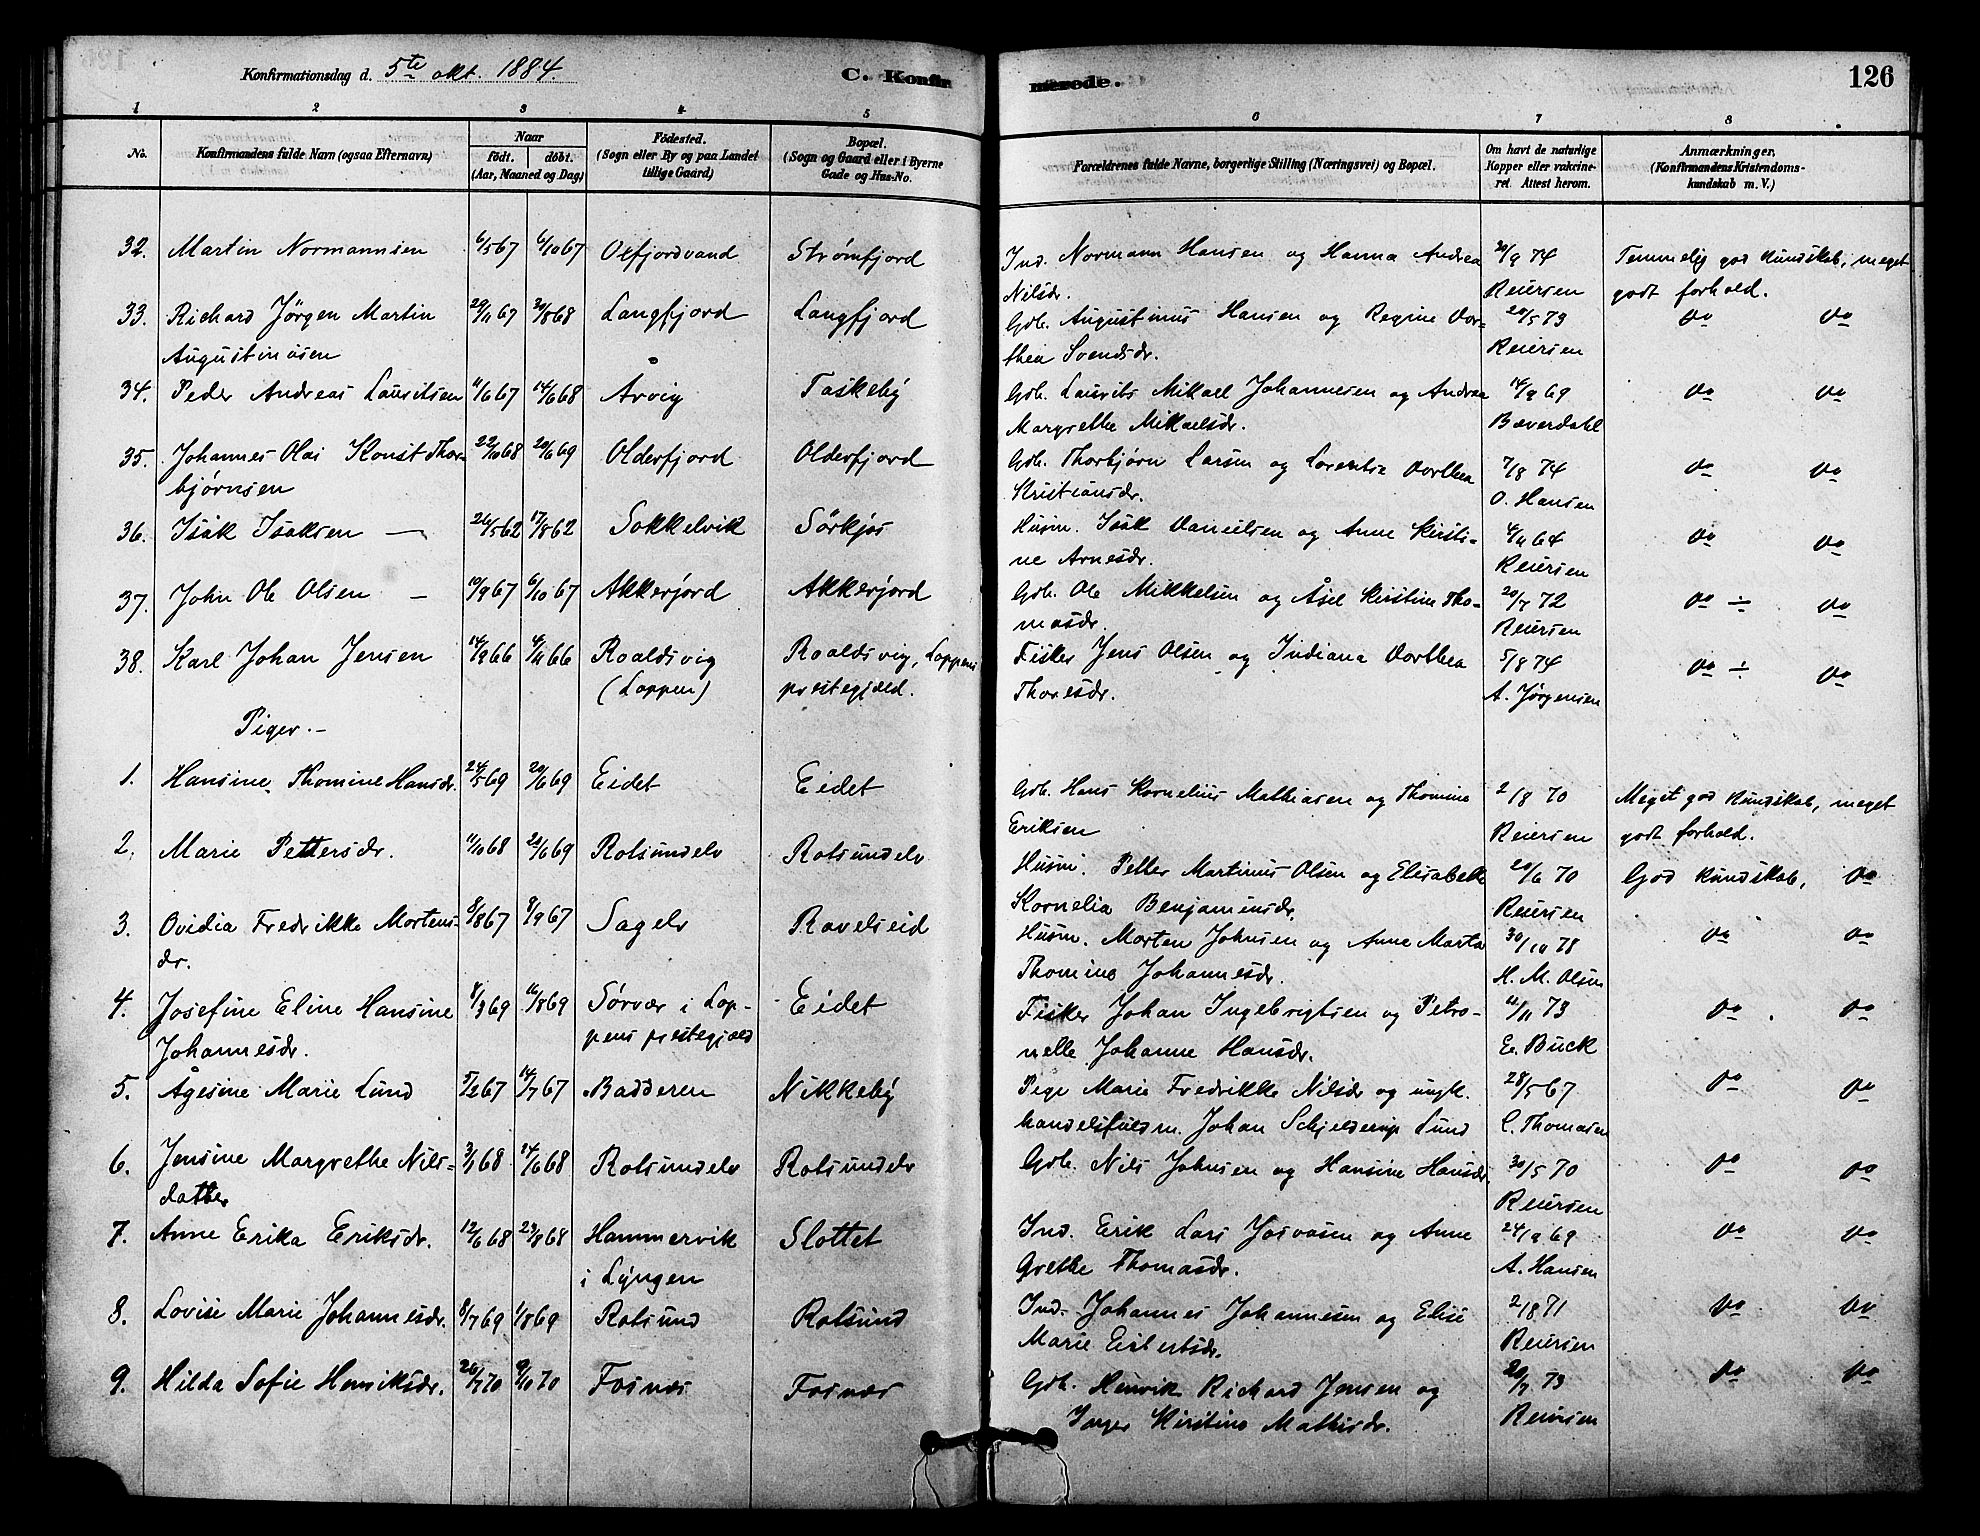 Konfirmationsdag d. 5te okt. 1884.
C. Konfir
merede.
126
1 2 3 4 5 6 7 8
No.
Konfirmandens fulde Navn (ogsaa Efternavn)
Naar
födt. döbt.
(Aar, Maaned og Dag)
Födested.
(Sogn eller By og paa Landet
tillige Gaard)
Bopæl.
(Sogn og Gaard eller i Byerne
Gade og Hus-No.
Forældrenes fulde Navne, borgerlige Stilling (Næringsvei) og Bopæl.
Om havt de naturlige
Kopper eller vakcine-
ret. Attest herom.
Anmærkninger.
(Konfirmandens Kristendoms-
kundskab m. V.)
32. Martin Normannsen 6/5 67 6/10 67 Oxfjordvand Strømfjord Ind. Normann Hansen og Hanna Andrea 20/9 74 Temmelig god kundskab, meget
Nilsdr. Reiersen godt forhold.
33. Richard Jörgen Martin 29/11 67 30/8 68 Langfjord Langfjord Gdb. Augustinus Hansen og Regine Dor- 20/5 73 do do
Augustinusen thea Svendsdr. Reiersen
34. Peder Andreas Lauritsen 11/6 67 14/6 68 Årvig Taskeby Gdb. Laurits Mikael Johannesen og Andrea 14/9 69 do do
Margrethe Mikaelsdr. Bæverdahl
35. Johannes Olai Konst Thor- 22/10 68 20/6 69 Olderfjord Olderfjord Gdb. Thorbjørn Larsen og Lorentse Dorthea 7/8 74 do do
bjørnsen Kristiansdr. O. Hansen
36. Isak Isaksen — 26/5 62 17/8 62 Sokkelvik Sörkjos Husm. Isak Danielsen og Anne Kirsti- 4/11 64 do do
ne Arnesdr. Reiersen
37. John Ole Olsen — 10/9 67 6/10 67 Akkerjord Akkerjord Gdb. Ole Mikkelsen og Åsel Kirstine Tho- 20/7 72 do ÷ do
masdr. Reiersen
38. Karl Johan Jensen 14/9 66 4/11 66 Roaldsvig Roaldsvig, Loppens Fisker Jens Olsen og Indiana Dorthea 5/8 74 do ÷ do
(Loppen) prestegjæld. Thoresdr. A. Jörgensen
Piger.-
1. Hansine Thomine Hansdr. 24/5 69 20/6 69 Eidet Eidet Gdb. Hans Kornelius Mathiasen og Thomine 2/8 70 Meget god kundskab, meget
Eriksen Reiersen godt forhold.
2. Marie Pettersdr. 11/10 68 20/6 69 Rotsundelv Rotsundelv Husm. Petter Martinus Olsen og Elisabeth 20/6 70 God kundskab, do
Kornelia Benjaminsdr. Reiersen
3. Ovidia Fredrikke Mortens- 8/8 67 8/9 67 Sagelv Ravelseid Husm. Morten Johnsen og Anne Marta 30/10 78 do do
dr. Thomine Johannesdr. H. M. Olsen
4. Josefine Eline Hansine 8/3 69 16/8 69 Sørvær i Lop- Eidet Fisker Johan Ingebrigtsen og Petro- 11/11 73 do do
Johannesdr. pens prestegjæld nelle Johanne Hansdr. E. Buck
5. Ågesine Marie Lund 5/2 67 14/7 67 Badderen Nikkeby Pige Marie Fredrikke Nilsdr og ungk. 28/5 67 do do
handelsfuldm. Johan Schjelderup Lund C. Thomasen
6. Jensine Margrethe Nils- 3/1 68 14/6 68 Rotsundelv Rotsundelv Gdb. Nils Johnsen og Hansine Hansdr. 30/5 70 do do
datter Reiersen
7. Anne Erika Eriksdr. 12/6 68 23/8 68 Hammervik Slottet Ind. Erik Lars Josvasen og Anne 24/9 69 do do
i Lyngen Grethe Thomasdr. A. Hansen
8. Lovise Marie Johannesdr. 8/7 69 1/8 69 Rotsund Rotsund Ind. Johannes Johannesen og Elise 2/8 71 do do
Marie Eisbertsdr. Reiersen
9. Hilda Sofie Henriksdr. 26/7 70 9/10 70 Fosnæs Fosnæs Gdb. Henrik Richard Jensen og 20/7 73 do do
Inger Kirstine Mathisdr. Reiersen